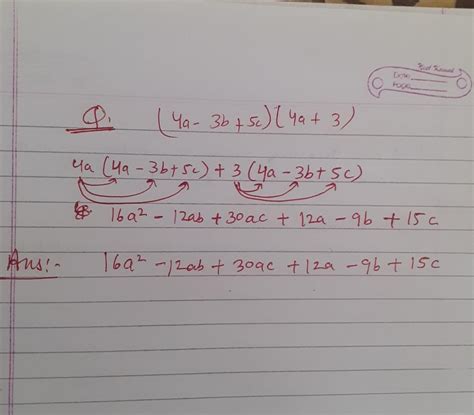 Q. (4a - 3b + 5c)(4a + 3)
4a (4a - 3b + 5c) + 3 (4a - 3b + 5c)
16a² - 12ab + 30ac + 12a - 9b + 15c
Ans:- 16a² - 12ab + 30ac + 12a - 9b + 15c